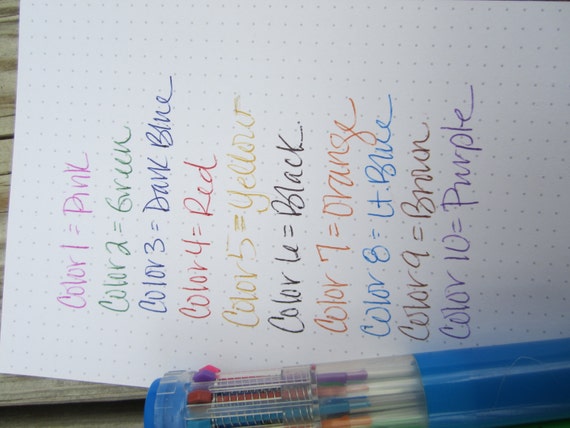 Color 1 = Pink
Color 2 = Green
Color 3 = Dark Blue
Color 4 = Red
Color 5 = Yellow
Color 6 = Black
Color 7 = Orange
Color 8 = Lt. Blue
Color 9 = Brown
Color 10 = Purple